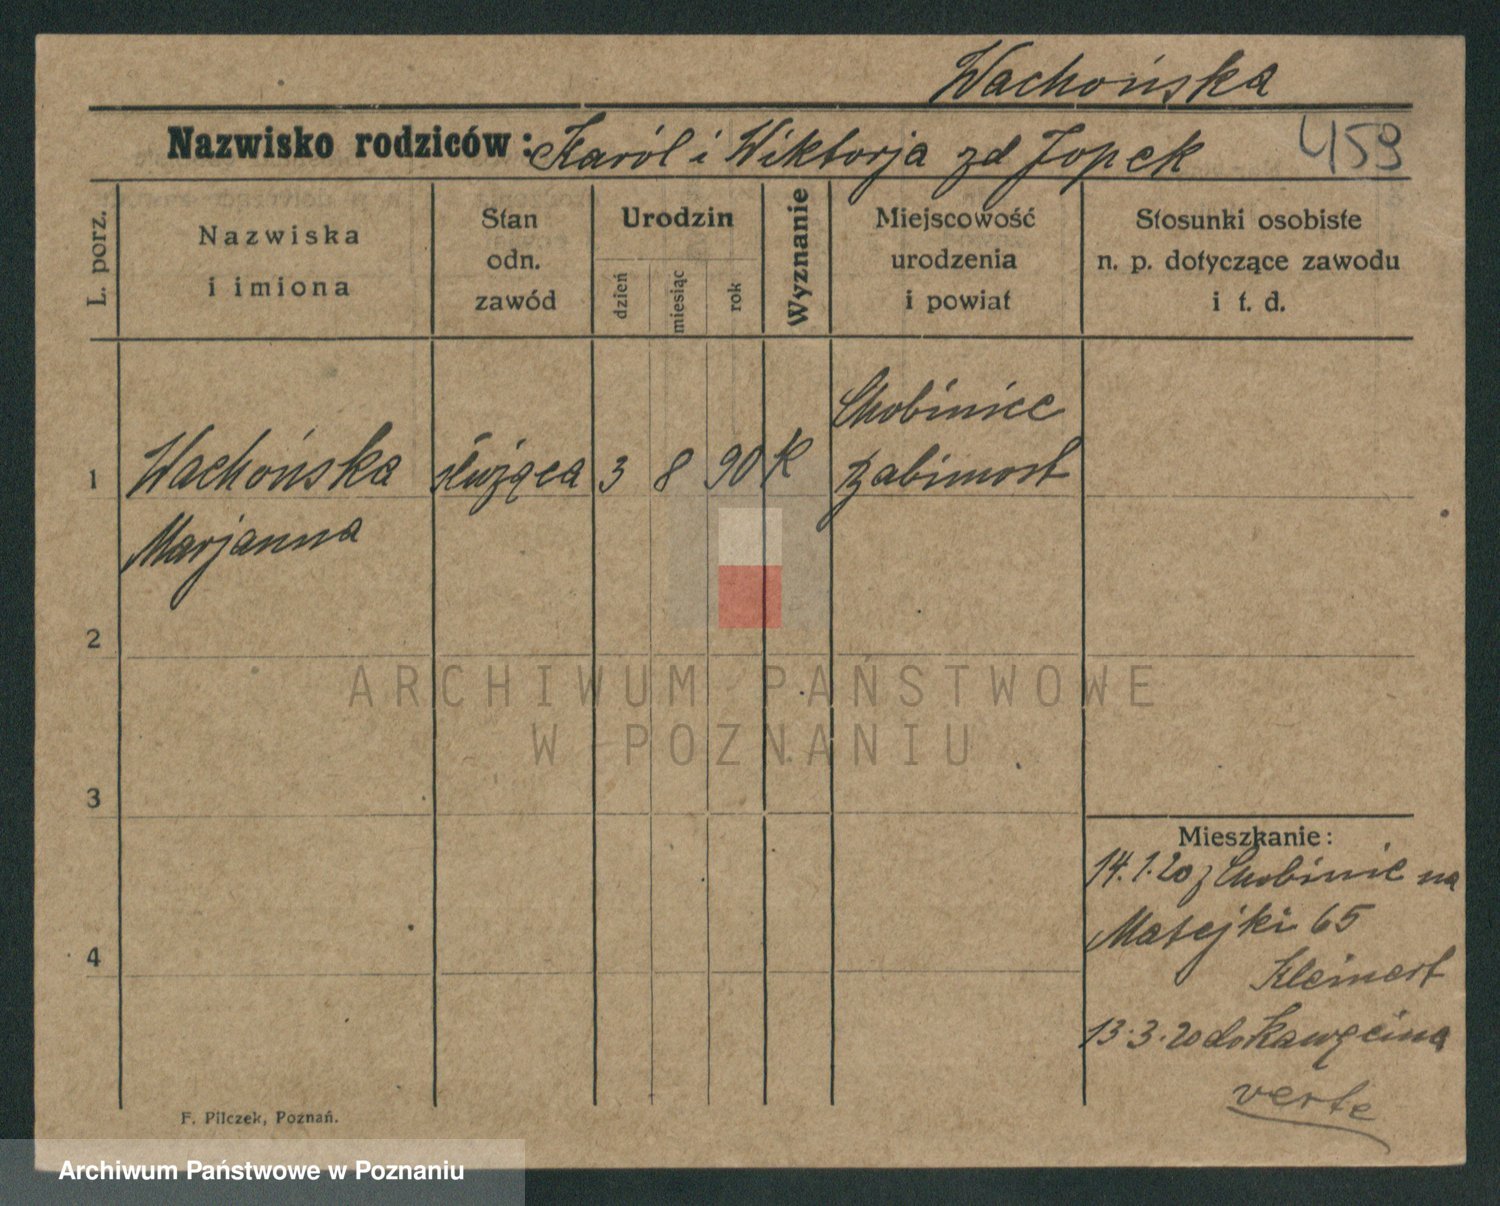 Wachońska
Nazwisko rodziców: Karól i Wiktorja zd Jopek 459
L. porz.
Nazwiska
i imiona
Stan
odn.
zawód
Urodzin
dzień
miesiąc
rok
Wyznanie
Miejscowość
urodzenia
i powiat
Stosunki osobiste
n. p. dotyczące zawodu
i t. d.
Chobinice
1 Wachońska służąca 3 8 90 K Babimost
Marjanna
2
ARCHIWUM PAŃSTWOWE
W POZNANIU
3
Mieszkanie:
14.1.20 z Chobinic na
Matejki 65
4
Kleinert
13.3.20 do Kawęcina
verte
F. Pilczek, Poznań.
Archiwum Państwowe w Poznaniu